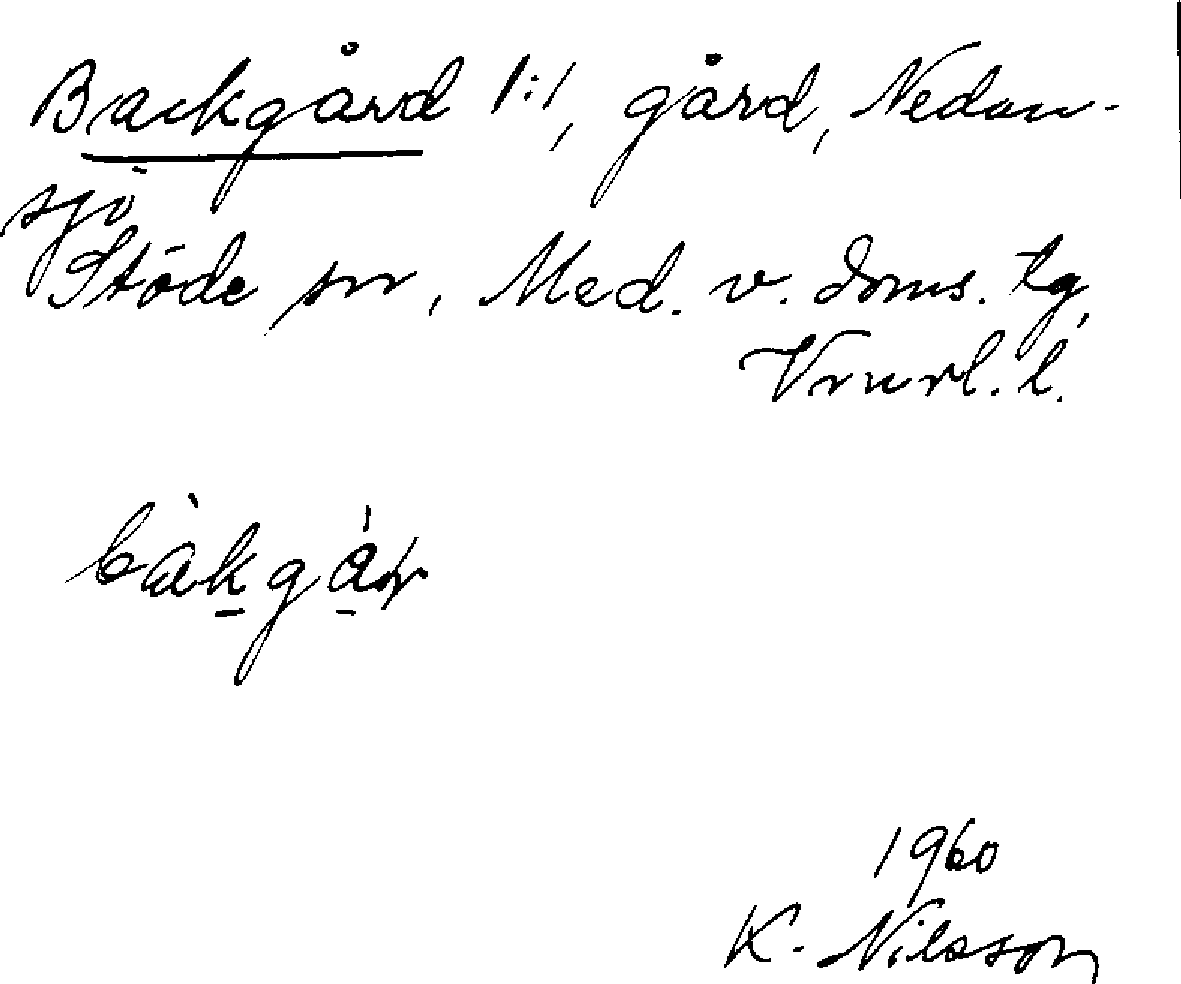 Backgård 1:1, gård, Nedan-
sjö
Stöde sn, Med. v. doms. tg,
Vnrl. l.
bàkgáɽ
1960
K. Nilsson